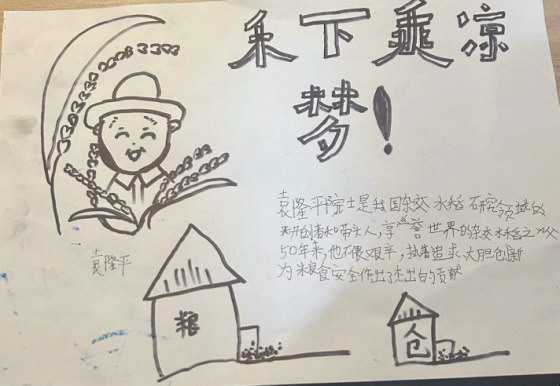 禾下乘凉
梦！
袁隆平院士是我国杂交水稻研究领域的
开创者和带头人，享誉世界的杂交水稻之父
50年来，他不畏艰辛，执着追求，大胆创新
为粮食安全作出了杰出的贡献
袁隆平
粮
仓